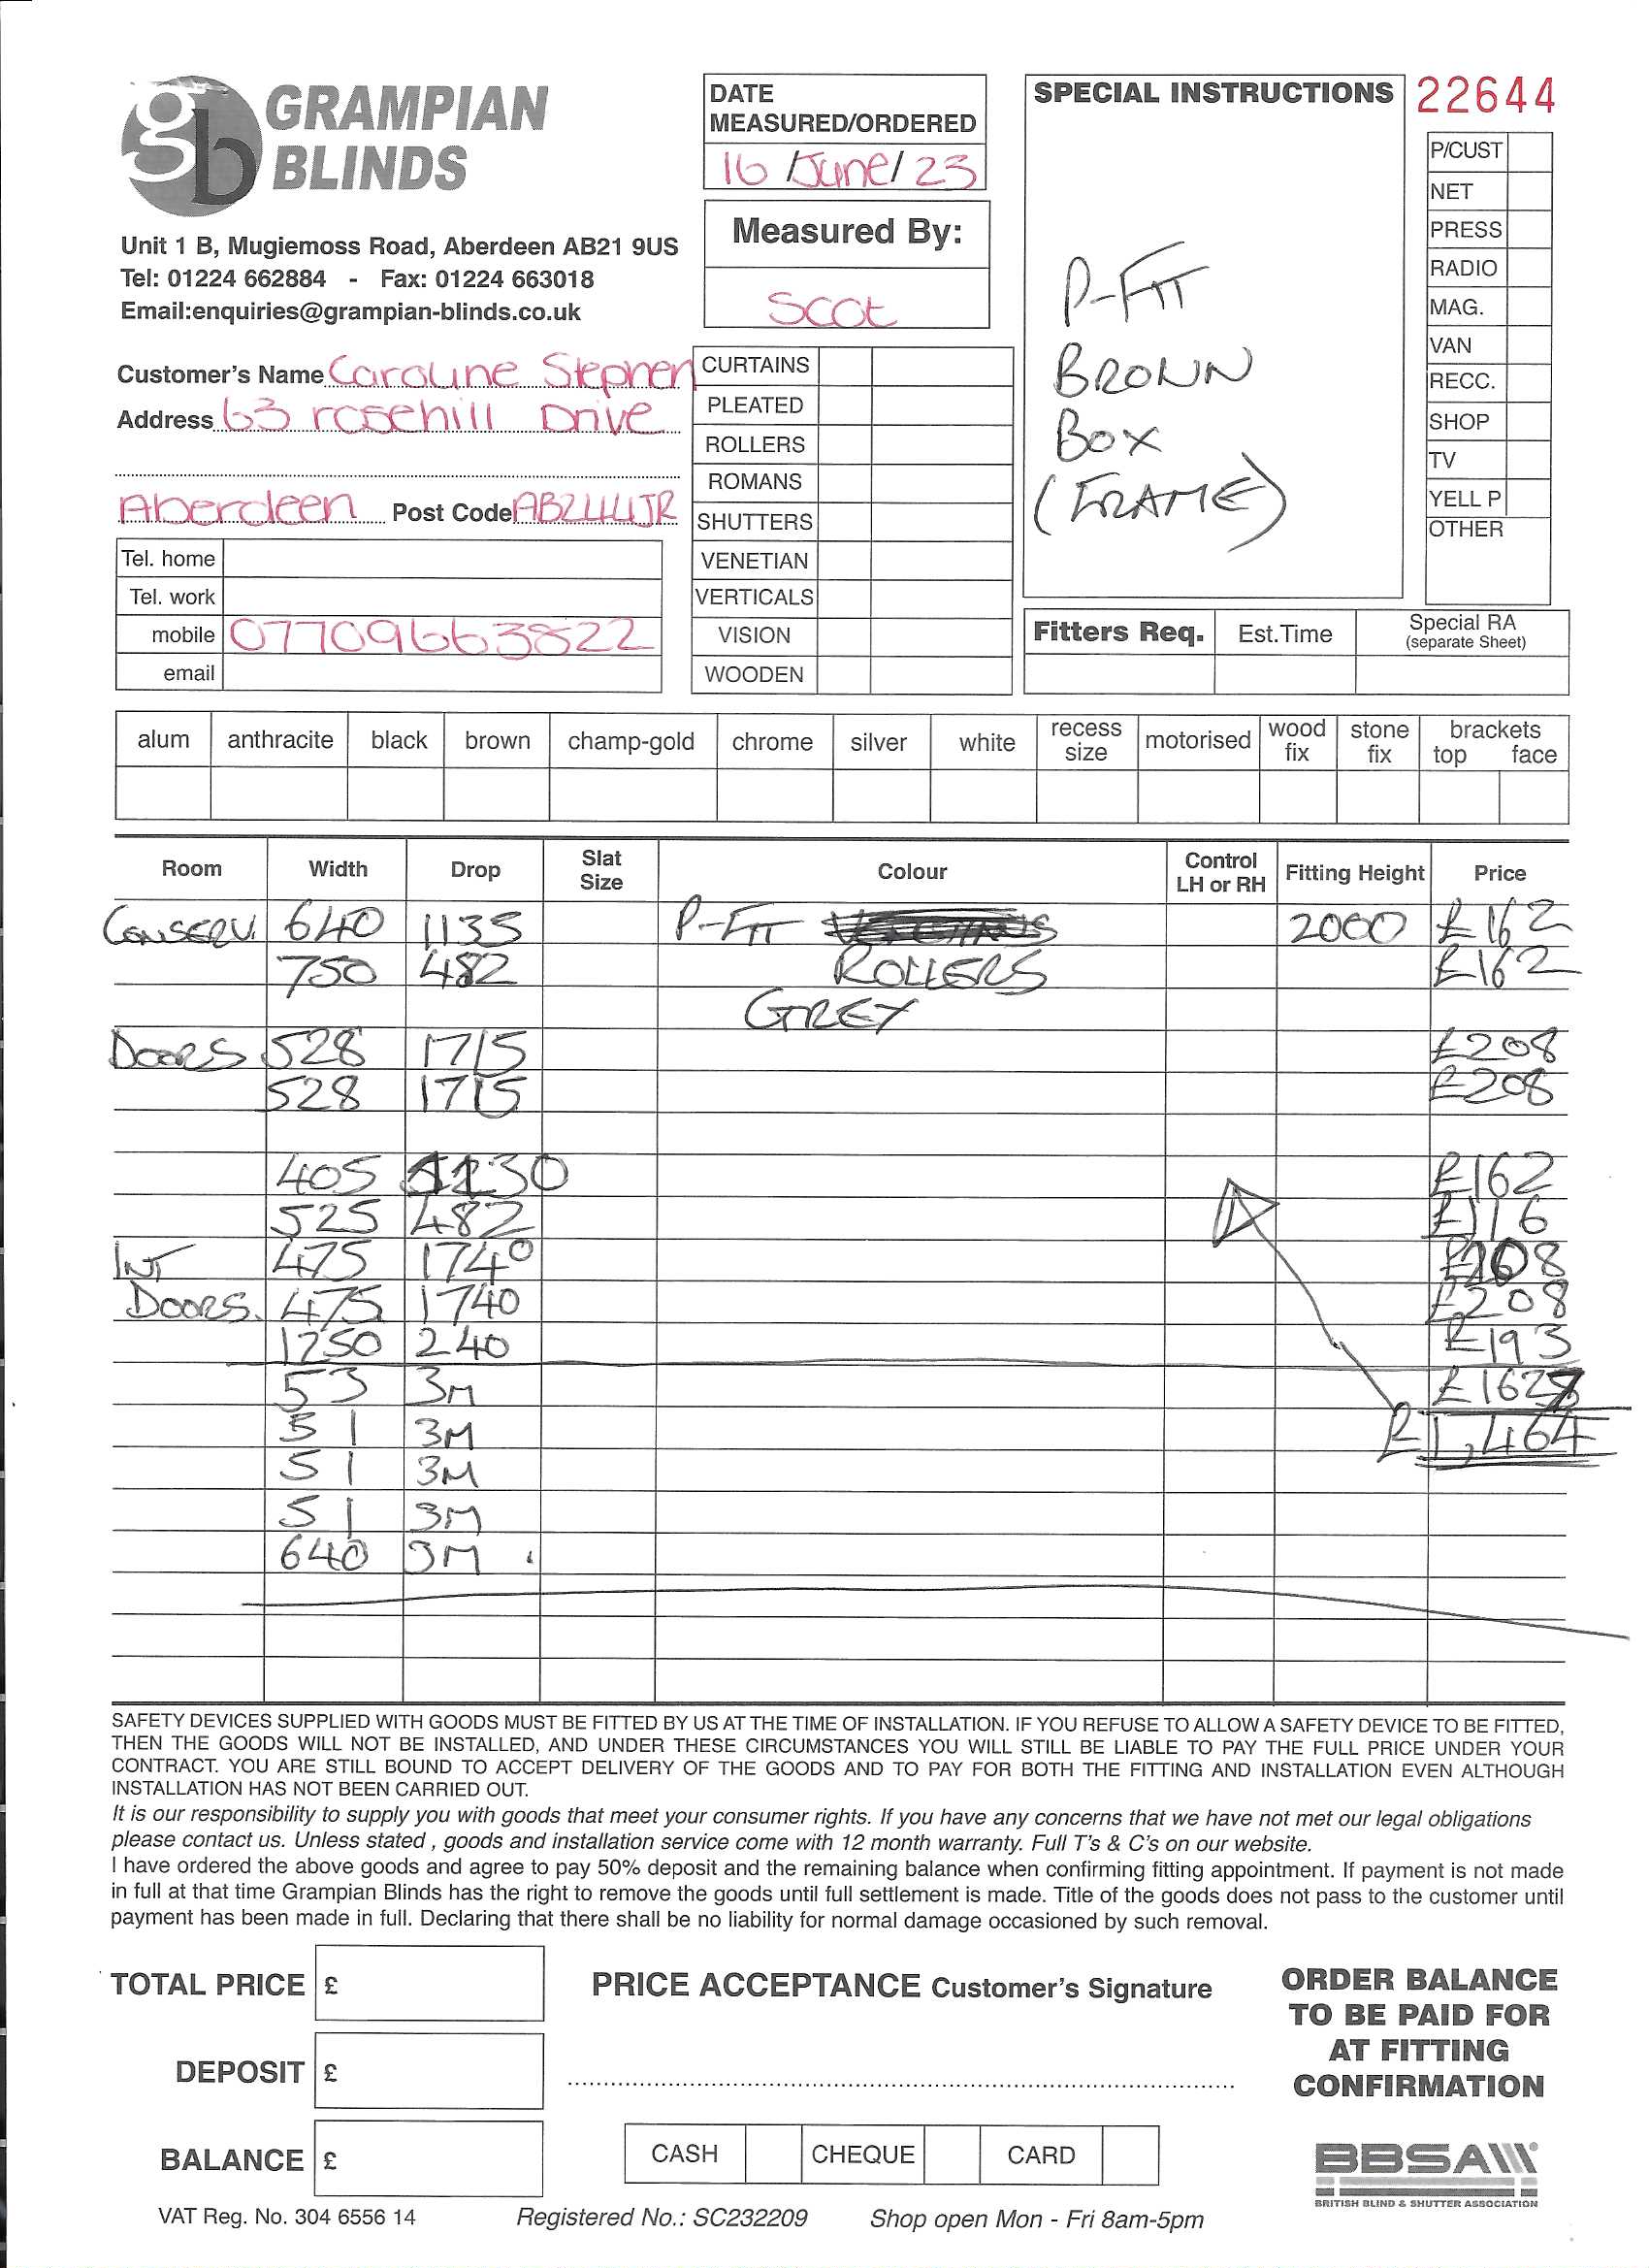 gb GRAMPIAN BLINDS
Unit 1 B, Mugiemoss Road, Aberdeen AB21 9US
Tel: 01224 662884 - Fax: 01224 663018
Email:enquiries@grampian-blinds.co.uk
DATE
MEASURED/ORDERED
16 / June / 23
Measured By:
Scot
SPECIAL INSTRUCTIONS
P-FIT
BROWN
BOX
(FRAME)
22644
P/CUST
NET
PRESS
RADIO
MAG.
VAN
RECC.
SHOP
TV
YELL P
OTHER
Customer's Name Caroline Stephen
Address 63 rosehill Drive
Aberdeen Post Code AB24 4JR
Tel. home
Tel. work
mobile 07709663822
email
CURTAINS
PLEATED
ROLLERS
ROMANS
SHUTTERS
VENETIAN
VERTICALS
VISION
WOODEN
Fitters Req. Est.Time Special RA (separate Sheet)
alum anthracite black brown champ-gold chrome silver white recess size motorised wood fix stone fix brackets top face
Room Width Drop Slat Size Colour Control LH or RH Fitting Height Price
CONSERV. 640 1135 P-FIT 2000 £162
750 482 ROLLERS £162
GREY
DOORS 528 1715 £208
528 1715 £208
405 1130 £162
525 482 £116
INT 475 1740 £208
DOORS. 475 1740 £208
1250 240 £193
53 3M £1627
51 3M £1,464
51 3M
51 3M
640 3M
SAFETY DEVICES SUPPLIED WITH GOODS MUST BE FITTED BY US AT THE TIME OF INSTALLATION. IF YOU REFUSE TO ALLOW A SAFETY DEVICE TO BE FITTED,
THEN THE GOODS WILL NOT BE INSTALLED, AND UNDER THESE CIRCUMSTANCES YOU WILL STILL BE LIABLE TO PAY THE FULL PRICE UNDER YOUR
CONTRACT. YOU ARE STILL BOUND TO ACCEPT DELIVERY OF THE GOODS AND TO PAY FOR BOTH THE FITTING AND INSTALLATION EVEN ALTHOUGH
INSTALLATION HAS NOT BEEN CARRIED OUT.
It is our responsibility to supply you with goods that meet your consumer rights. If you have any concerns that we have not met our legal obligations
please contact us. Unless stated , goods and installation service come with 12 month warranty. Full T's & C's on our website.
I have ordered the above goods and agree to pay 50% deposit and the remaining balance when confirming fitting appointment. If payment is not made
in full at that time Grampian Blinds has the right to remove the goods until full settlement is made. Title of the goods does not pass to the customer until
payment has been made in full. Declaring that there shall be no liability for normal damage occasioned by such removal.
TOTAL PRICE £
DEPOSIT £
BALANCE £
PRICE ACCEPTANCE Customer's Signature
CASH CHEQUE CARD
ORDER BALANCE
TO BE PAID FOR
AT FITTING
CONFIRMATION
BBSA
BRITISH BLIND & SHUTTER ASSOCIATION
VAT Reg. No. 304 6556 14 Registered No.: SC232209 Shop open Mon - Fri 8am-5pm